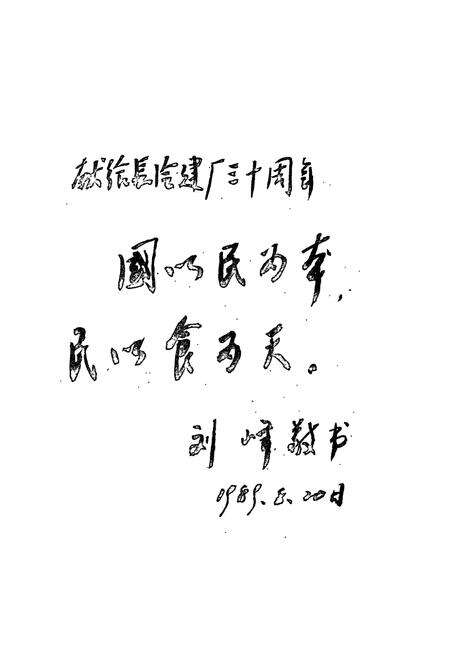 献给長建厂三十周年
國以民为本,
民以食为天。
刘峰敬书
1989.5.20日